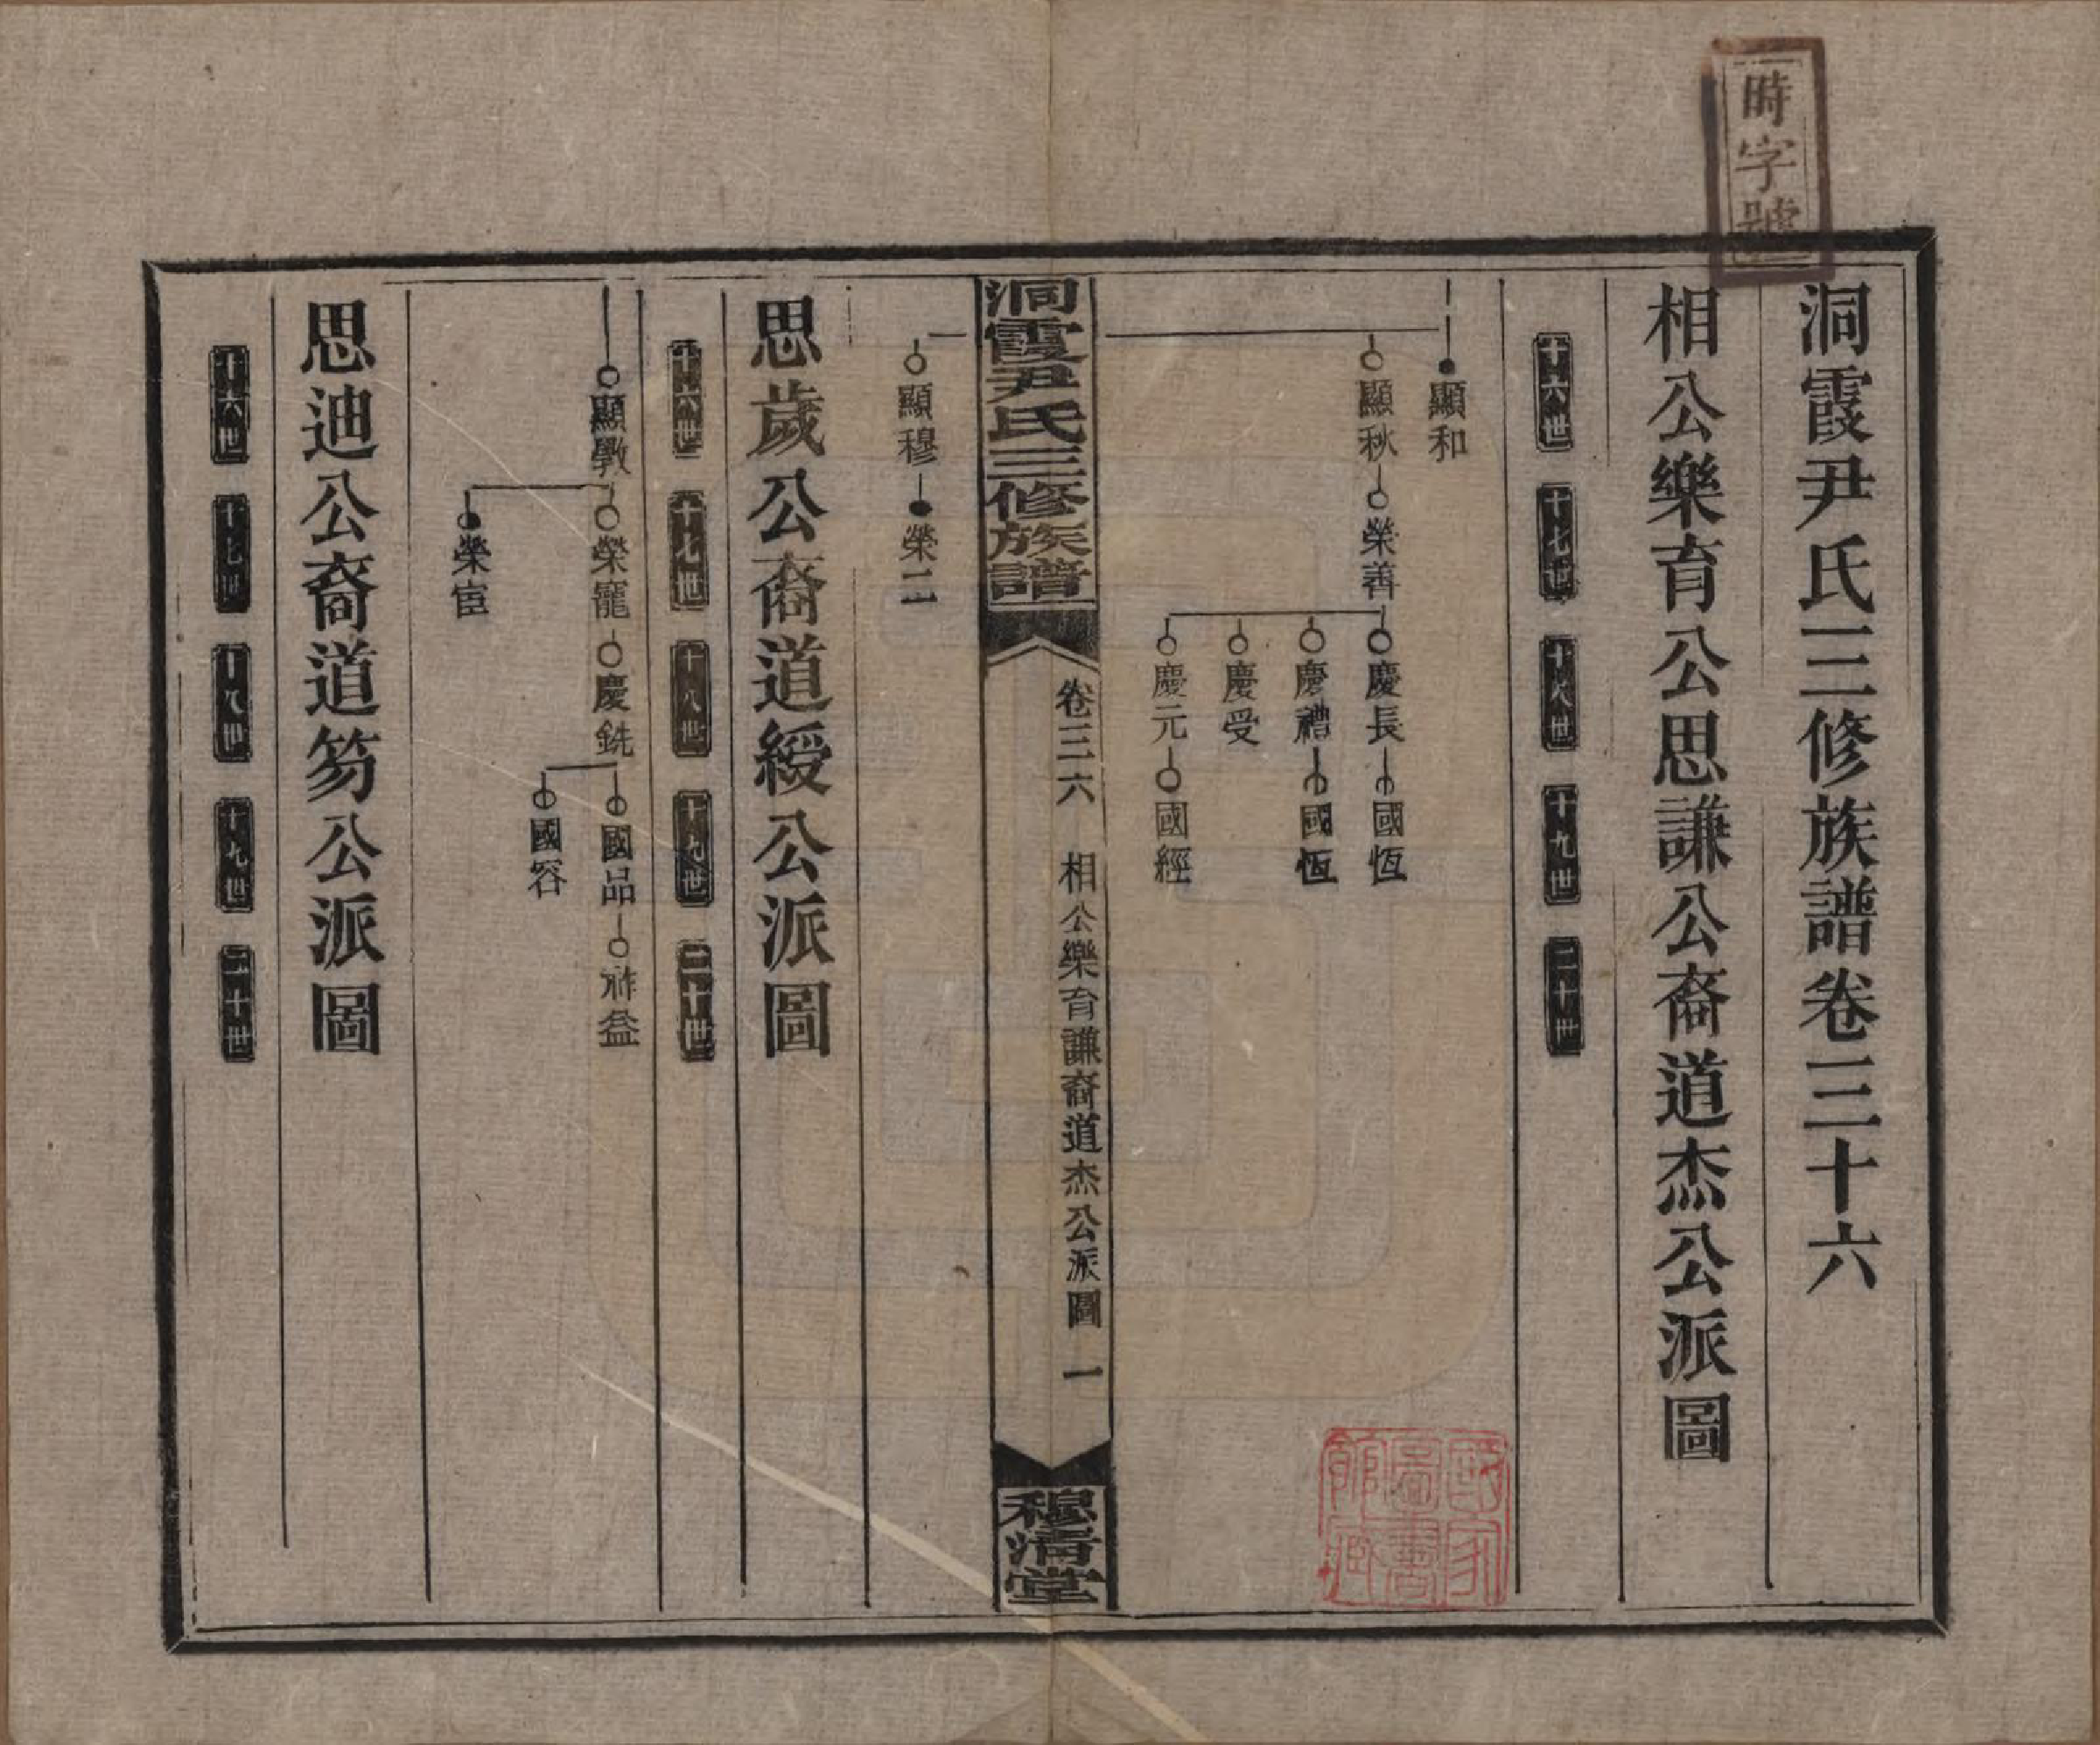 時字號
洞霞尹氏三修族譜卷三十六
相公樂育公思謙公裔道杰公派圖
十六世 十七世 十八世 十九世 二十世
顯和
顯秋 榮善 慶長 國恆
慶禮 國恆
慶受
慶元 國經
洞霞尹氏三修族譜 卷三六 相公樂育謙裔道杰公派圖 一 穆清堂
顯穆 榮二
思歲公裔道綬公派圖
十六世 十七世 十八世 十九世 二十世
顯斆 榮寵 慶銑 國品 祚益
國容
榮宦
思迪公裔道笏公派圖
十六世 十七世 十八世 十九世 二十世
國家圖書館藏